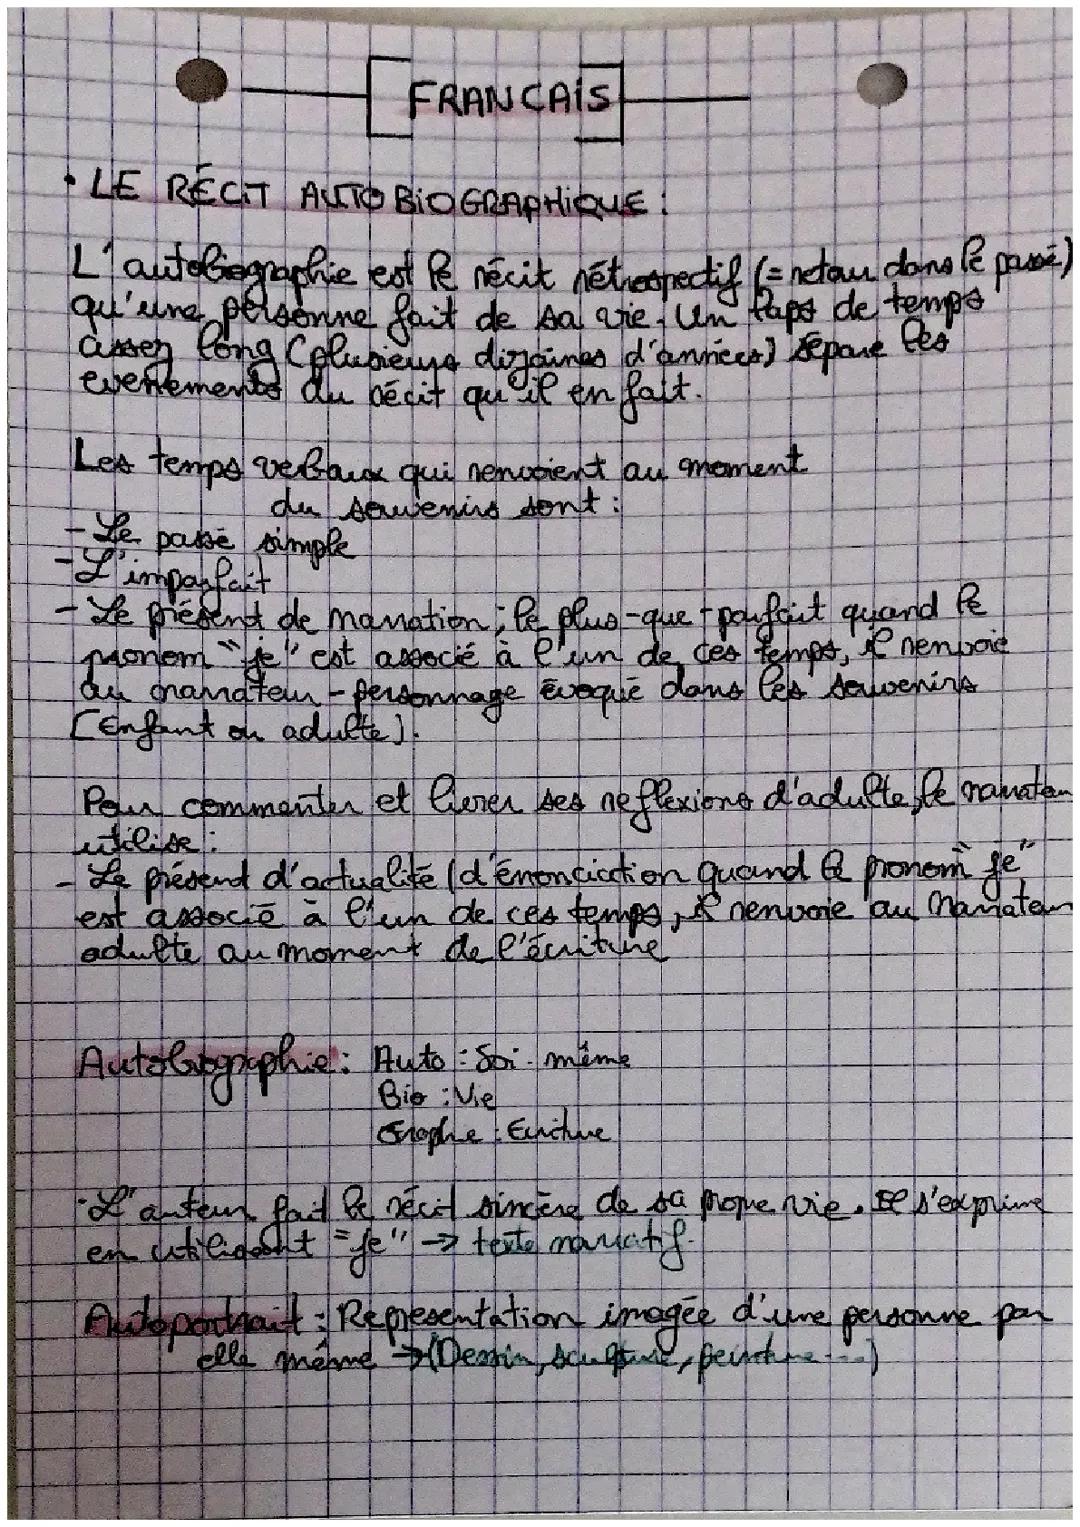 FRANCAIS
• LE RÉCIT AUTOBIOGRAPHIQUE :
L'autobiographie est le récit rétrospectif (= retour dans le passé)
qu'une personne fait de sa vie. Un laps de temps
assez long (plusieurs dizaines d'années) sépare les
evenements du récit qu'il en fait.
Les temps verbaux qui renvoient au moment
du souvenirs sont :
- Le passé simple
- L'imparfait
- Le présent de narration ; le plus-que-parfait quand le
pronom "je" est associé à l'un de ces temps, il renvoie
au narrateur-personnage évoqué dans les souvenirs
(Enfant ou adulte).
Pour commenter et livrer ses reflexions d'adulte, le narrateur
utilise :
- Le présend d'actualité (d'énonciation quand le pronom "je"
est associé à l'un de ces temps, il renvoie au narrateur
adulte au moment de l'écriture
Autobiographie : Auto : Soi-même
Bio : Vie
Graphe : Ecriture
• L'auteur fait le récit sincère de sa propre vie. Il s'exprime
en utilisant "je" → texte narratif.
Autoportrait : Représentation imagée d'une personne par
elle même → (Dessin, sculpture, peinture...)